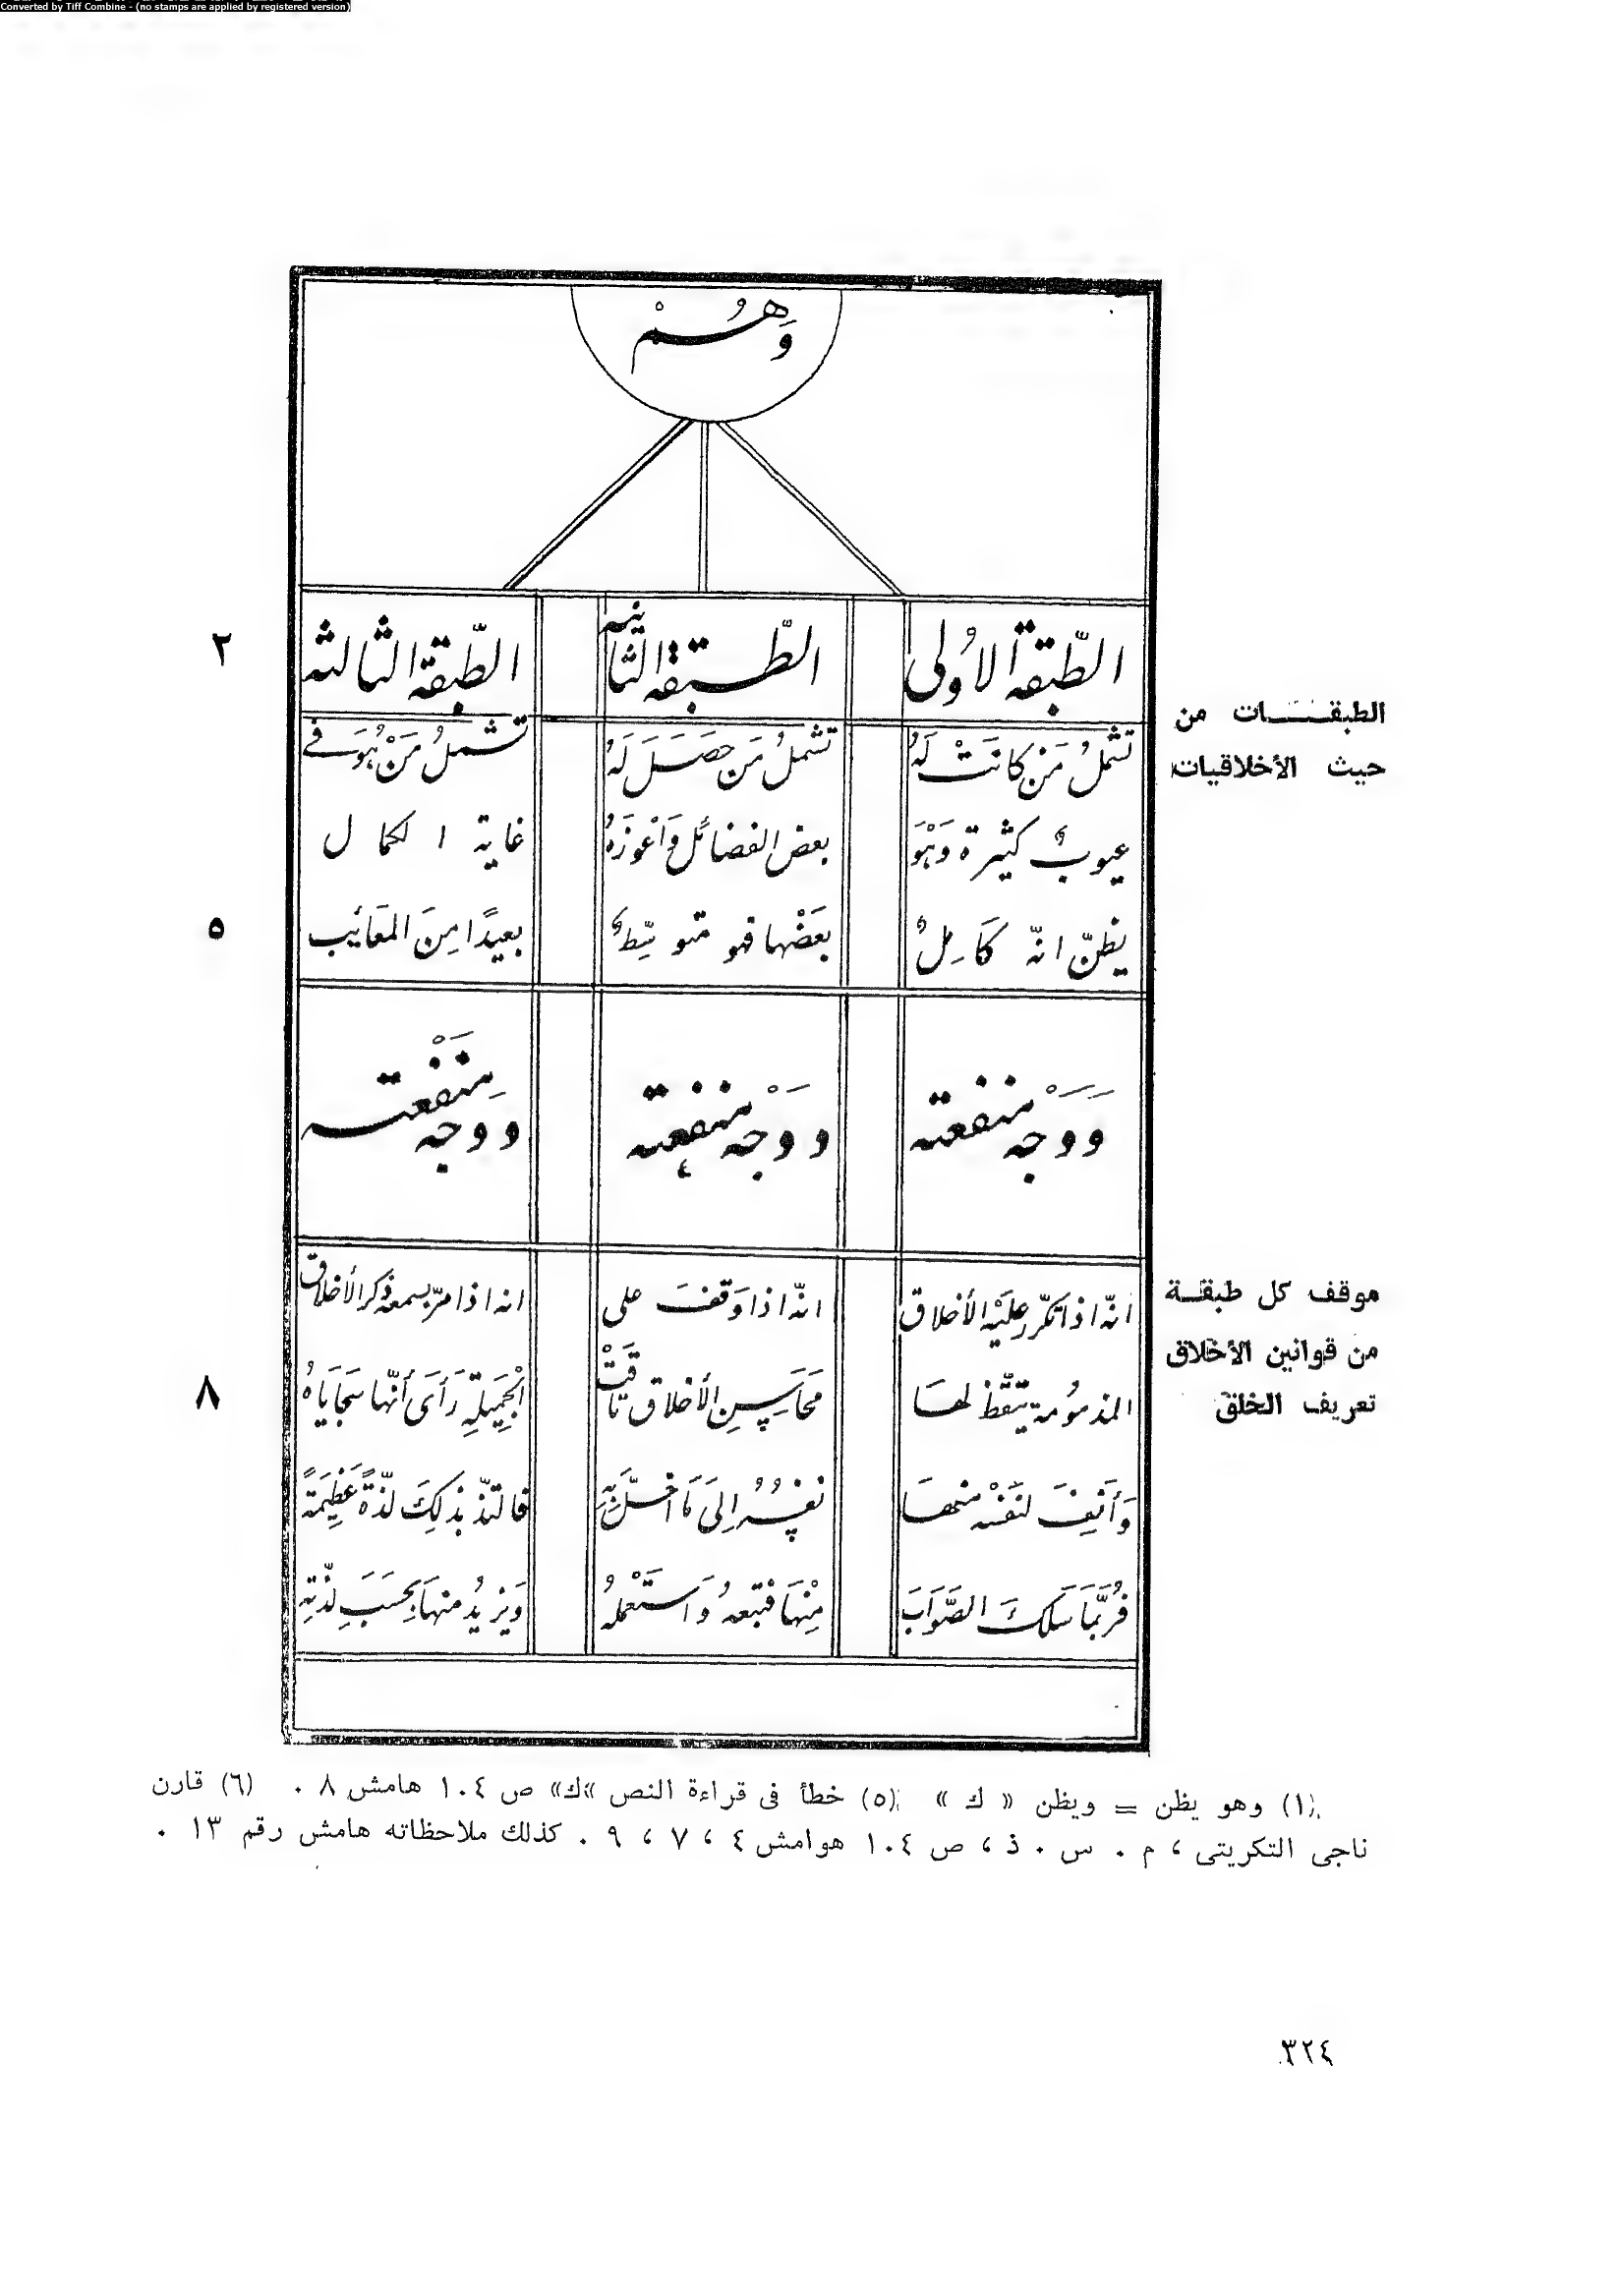 Converted by Tiff Combine - (no stamps are applied by registered version)
وَهُمْ
الطّبقة الأولى
الطّبقة الثانية
الطّبقة الثالثه
٢
الطبقات من
حيث الأخلاقيات
تشملُ مَن كانَتْ لَهُ
عيوبٌ كثيرة وَهْوَ
يظنّ انّه كَامِلٌ
تشملُ مَن حَصَلَ لَهُ
بعض الفضائل وَأعْوزَهُ
بعَضْها فهو متوسّطٌ
تشملُ مَنْ هُوَ في
غاية الكمال
بعيدًا مِنَ المعَائب
٥
وَوَجْه منفعته
ووَجْه منفعته
٤
ووجه مَنْفِعته
موقف كل طبقة
من قوانين الأخلاق
تعريف الخلق
انّه اذا تكرّر عليْه الأخلاق
المذمُومة تيَقّظ لهَا
وَأنِفَ لنَفْسه منهَا
فُربَّمَا سَلكَ الصَّوَابَ
انّه اذا وَقفَ على
محَاسِنِ الأخلاق تَاقتْ
نفسُهُ إلىَ مَا أخلَّ بِهِ
مِنْهَا فتبعهُ وَاستَعْملهُ
انه اذا مرّ بسمعه ذكر الأخلاق
الجَمِيلةِ رَأىَ أنّها سَجَايَاهُ
فالتذّ بذلِكَ لذّةً عَظِيمَةً
وَيزيدُ منهَا بحسَبِ لذّتِهِ
٨
(١) وهو يظن = ويظن « ك » (٥) خطأ فى قراءة النص «ك» ص ١٠٤ هامش ٨ . (٦) قارن
ناجى التكريتى ، م . س . ذ ، ص ١٠٤ هوامش ٤ ، ٧ ، ٩ . كذلك ملاحظاته هامش رقم ١٣ .
٣٢٤